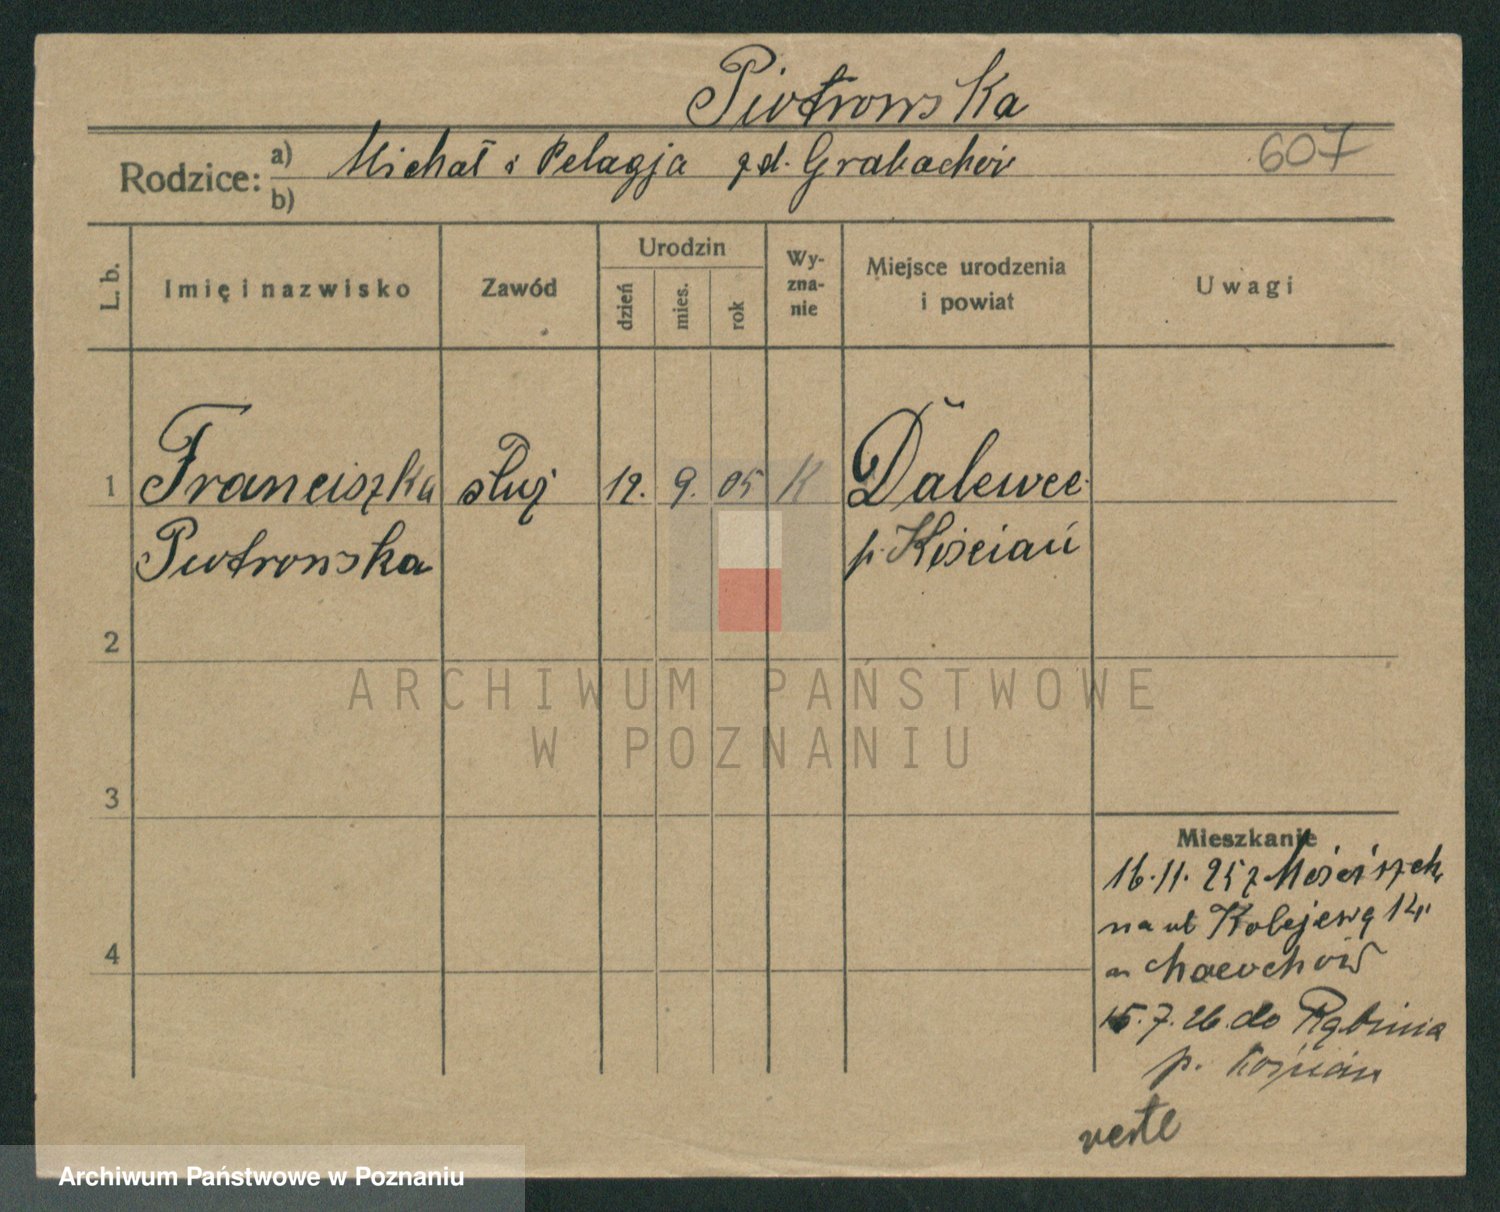 Piotrowska
Rodzice: a) Michał i Pelagja zd. Grabachów 607
b)
L. b. Imię i nazwisko Zawód Urodzin dzień mies. rok Wyznanie Miejsce urodzenia i powiat Uwagi
1 Franciszka służ 12. 9. 05 K Dalewce
Piotrowska p. Kościań
2
ARCHIWUM PAŃSTWOWE
W POZNANIU
3
Mieszkanie
16.11.25 z Mościszek
na ul Kolejewą 14
15.7.26. do Rąbinia
4
p. Kościan
verte
Archiwum Państwowe w Poznaniu